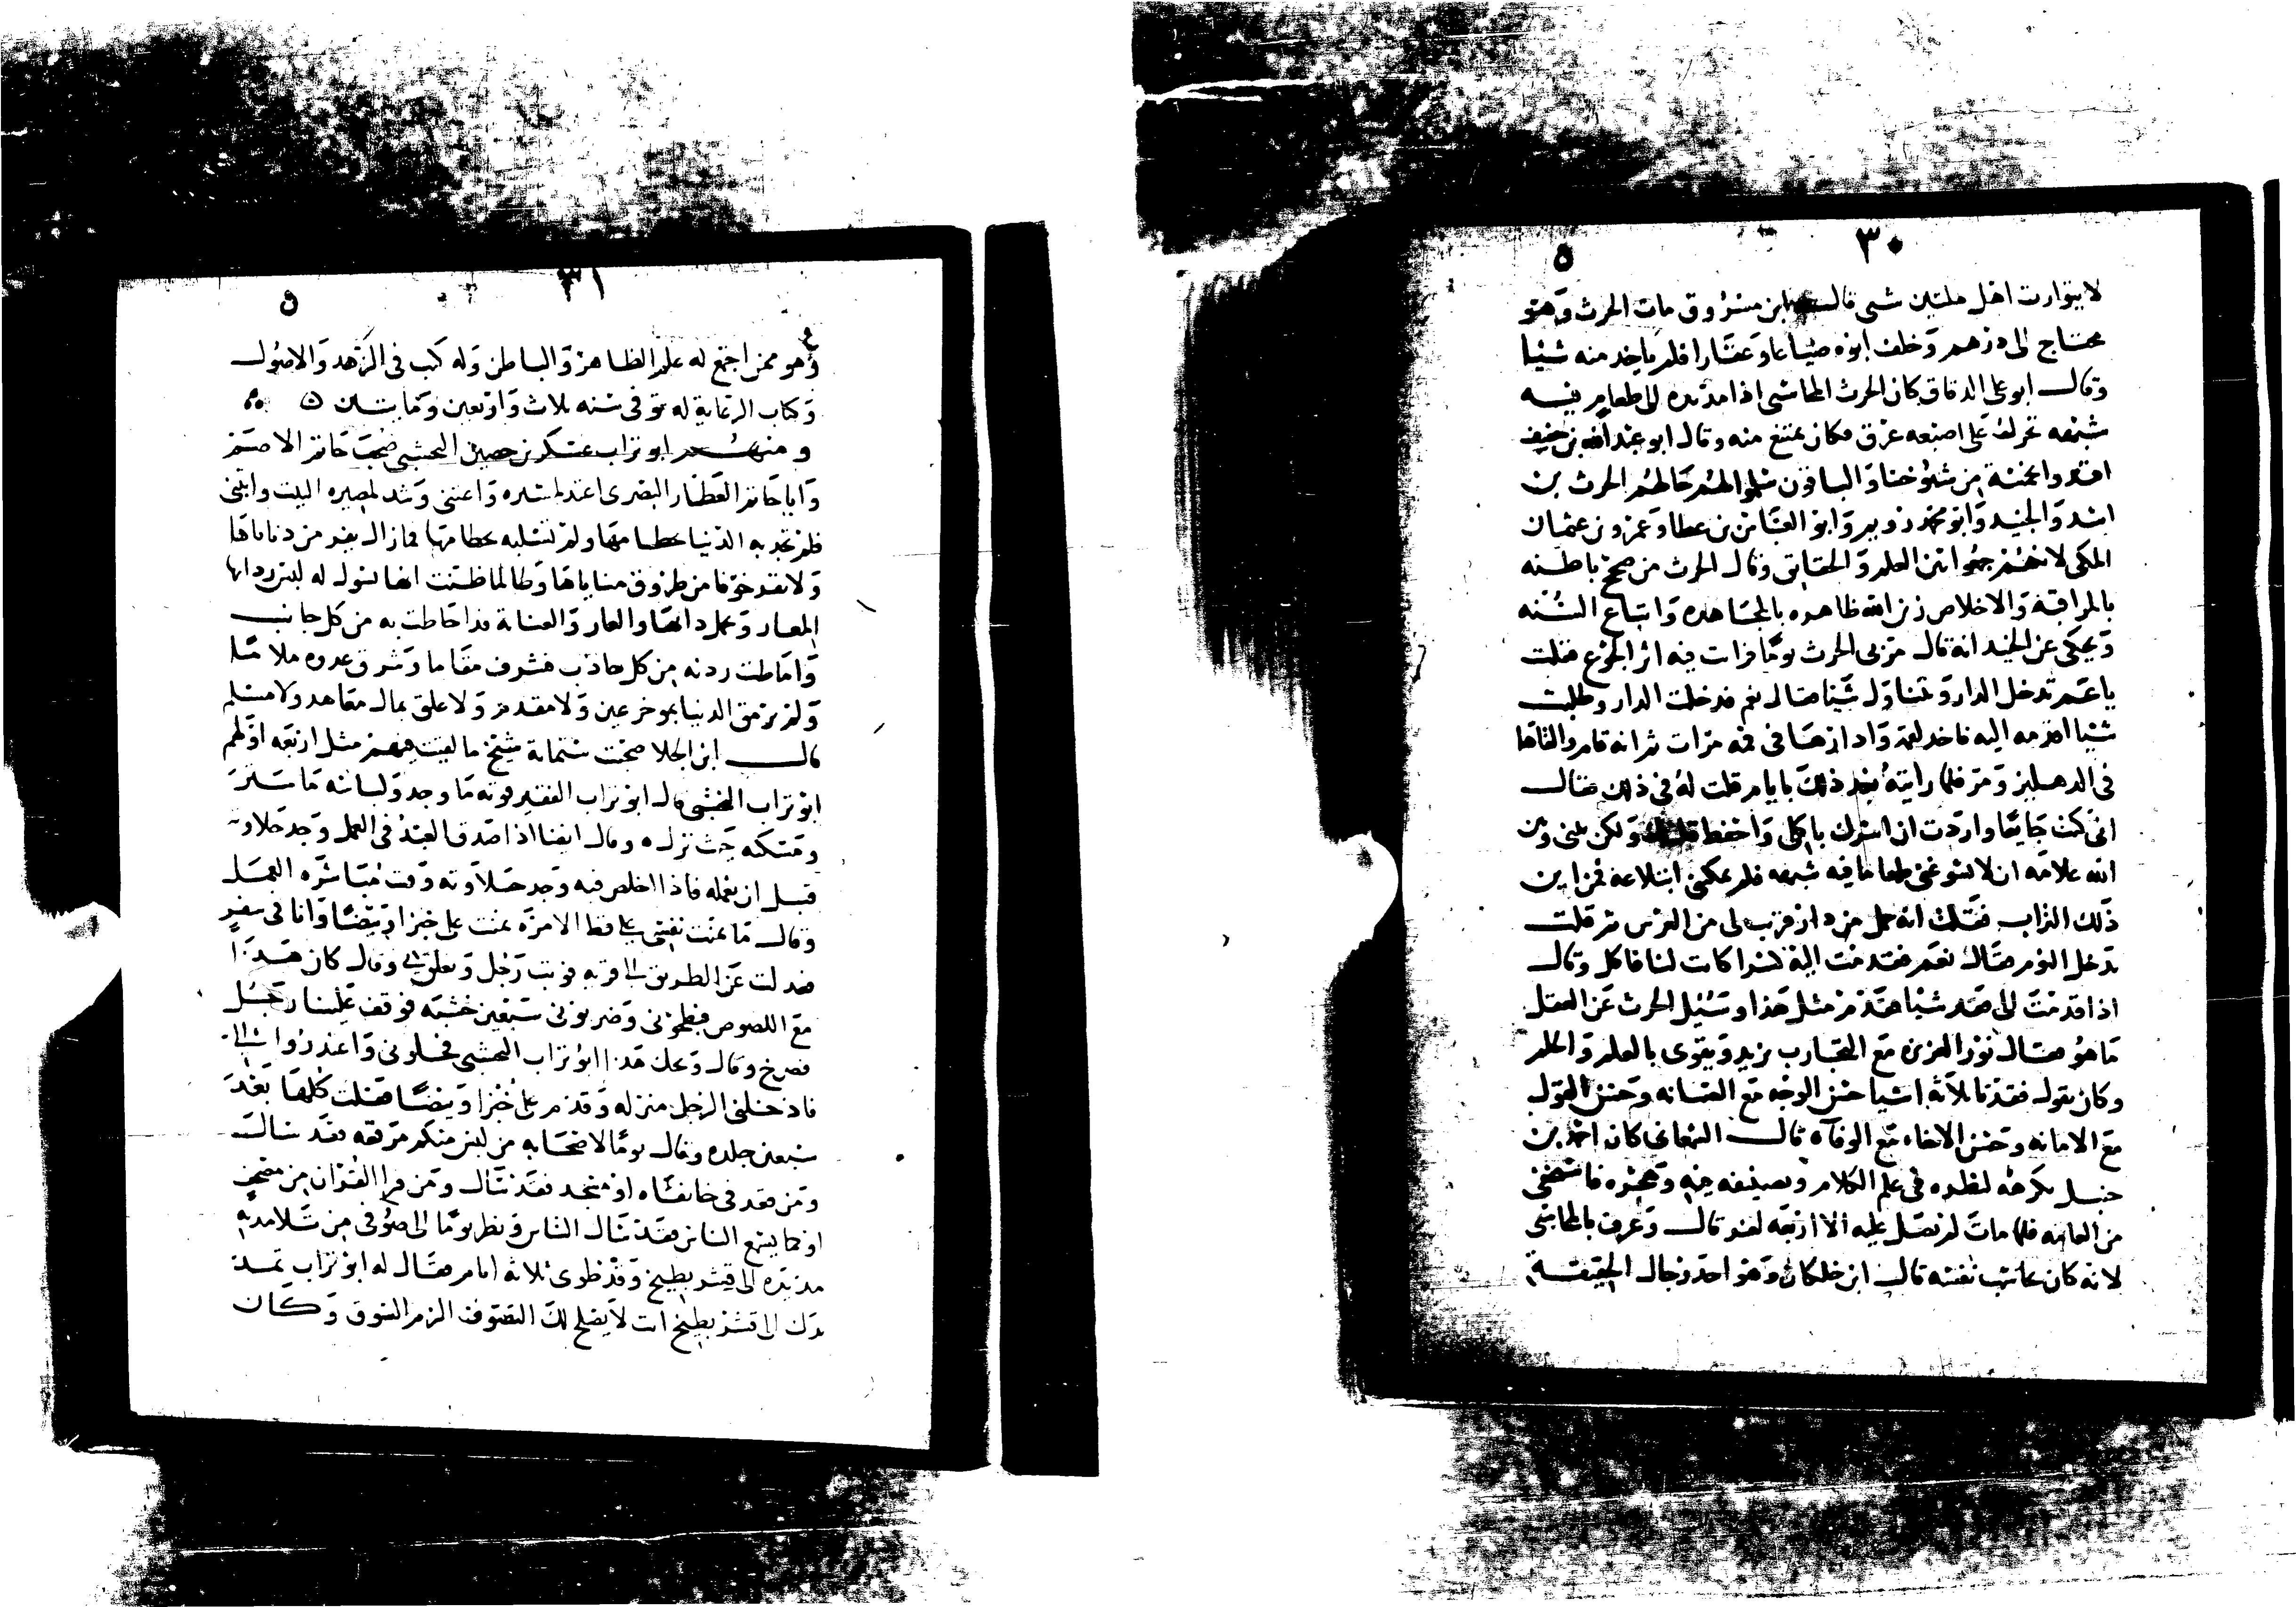 ٣٠
لا يتوارث اهل ملتين شى قال ابن مسروق مات الحرث وهو
محتاج الى درهم وخلف ابوه ضياعا وعقارا فلم ياخد منه شيئا
وقال ابو على الدقاق كان الحرث المحاسبى اذا مد يده الى طعام فيه
شبهه تحرك على اصبعه عرق فكان يمتنع منه وقال ابو عبد الله بن خفيف
اقتدوا بخمسة من شيوخنا والباقون سلموا اليهم حالهم الحرث بن
اسد والجنيد وابو محمد رويم وابو العباس بن عطا وعمرو بن عثمان
المكى لانهم جمعوا بين العلم والحقايق وقال الحرث من صحح باطنه
بالمراقبة والاخلاص زين الله ظاهره بالمجاهده واتباع السنه
ويحكى عن الجنيد انه قال مر بى الحرث يوما فرات فيه اثر الجوع فقلت
يا عم تدخل الدار وتتناول شيا فقال نعم فدخلت الدار وطلبت
شيا اقدمه اليه فاخد لقمة وادارها فى فمه مرات ثم انه قام والقاها
فى الدهليز ومر فلما رايته بعد ذلك بايام قلت له فى ذلك فقال
انى كنت جايعا واردت ان اسرك باكلى واحفظ قلبك ولكن بينى وبين
الله علامه ان لا يسوغنى طعاما فيه شبهه فلم يمكنى ابتلاعه فمن اين
ذلك التراب فقلت انه حمل من دار قريب لى من العرس ثم قلت
تدخل اليوم فقال نعم فقدمت اليه كسرا كانت لنا فاكل وقال
اذا قدمت الى فقير شيا فقدم مثل هذا وسئيل الحرث عن العقل
ما هو فقال نور الغريزه مع التجارب يزيد ويقوى بالعلم والحلم
وكان يقول فقدنا ثلاثه اشيا حسن الوجه مع الصيانه وحسن القول
مع الامانه وحسن الاخاء مع الوفاء قال السمعانى كان احمد بن
حنبل يكرهه لنظره فى علم الكلام وتصنيفه فيه وهجره فاستخفى
من العامه فلما مات لم يصل عليه الا اربعه نفر قال وعرف بالمحاسبى
لانه كان يحاسب نفسه قال ابن خلكان وهو احد رجال الحقيقه
٣١
وهو ممن اجتمع له علم الظاهر والباطن وله كتب فى الزهد والاصول
وكتاب الرعاية له توفى سنه ثلاث واربعين ومايتين
ومنهم ابو تراب عسكر بن حصين النخشبى صحب حاتم الاصم
وابا حاتم العطار البصرى اعتد لمسيره واعتنى وشد لمصيره البيت وابتنى
فلم تجذبه الدنيا بخطامها ولم تسلبه بحطامها فما زال يفر من دناياها
ولا يعد خوفا من طروق مناياها وطالما ظنت انها تسول له لبس ردايها
المعار وتحمل دايها والعار والعناية قد احاطت به من كل جانب
واماطت ردنه من كل جاذب فشرف مقاما وشرق عدوه ملاما
ولم يرمق الدنيا بموخر عين ولا مقدم ولا علق بمال معاهد ولا مسلم
قال ابن الجلا صحبت ستماية شيخ ما لقيت فيهم مثل اربعه اولهم
ابو تراب النخشبى قال ابو تراب الفقير قوته ما وجد ولباسه ما ستر
ومسكنه حيث نزل وقال ايضا اذا صدق العبد فى العمل وجد حلاوته
قبل ان يعمله فاذا اخلص فيه وجد حلاوته وقت مباشره العمل
وقال ما تمنت نفسى على قط الا مره تمنت على خبزا وبيضا وانا فى سفر
فعدلت عن الطريق الى قريه فوثب رجل وتعلق بى وقال كان هذا
مع اللصوص فبطحونى وضربونى سبعين خشبه فوقف علينا رجل
فصرخ وقال ويحك هذا ابو تراب النخشبى فخلونى واعتذروا الى
فادخلنى الرجل منزله وقدم على خبزا وبيضا فقلت كلها بعد
سبعين جلده وقال يوما لاصحابه من لبس منكم مرقعه فقد سال
ومن قعد فى خانقاه او مسجد فقد سال ومن قرا القران من مصحف
او كما يسمع الناس فقد سال الناس ونظر يوما الى صوفى من تلامدته
مد يده الى قشر بطيخ وقد طوى ثلاثه ايام فقال له ابو تراب تمد
يدك الى قشر بطيخ انت لا يصلح لك التصوف الزم السوق وكان